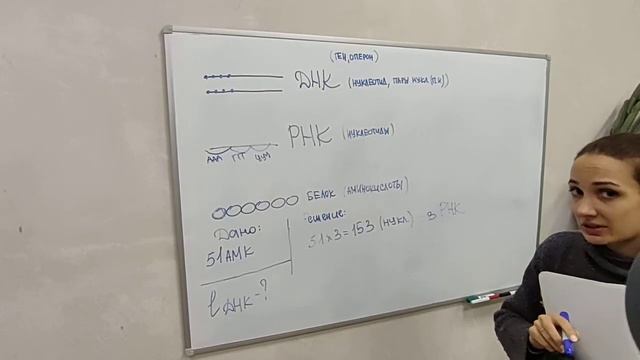 (ГЕН, ОПЕРОН)
ДНК (НУКЛЕОТИД, ПАРЫ НУКЛ (П.Н))
РНК (НУКЛЕОТИДЫ)
ААА ГГГ
БЕЛОК (АМИНОКИСЛОТЫ)
Дано:
51 АМК
l ДНК-?
ешение:
51×3=153 (НУКЛ) в РНК